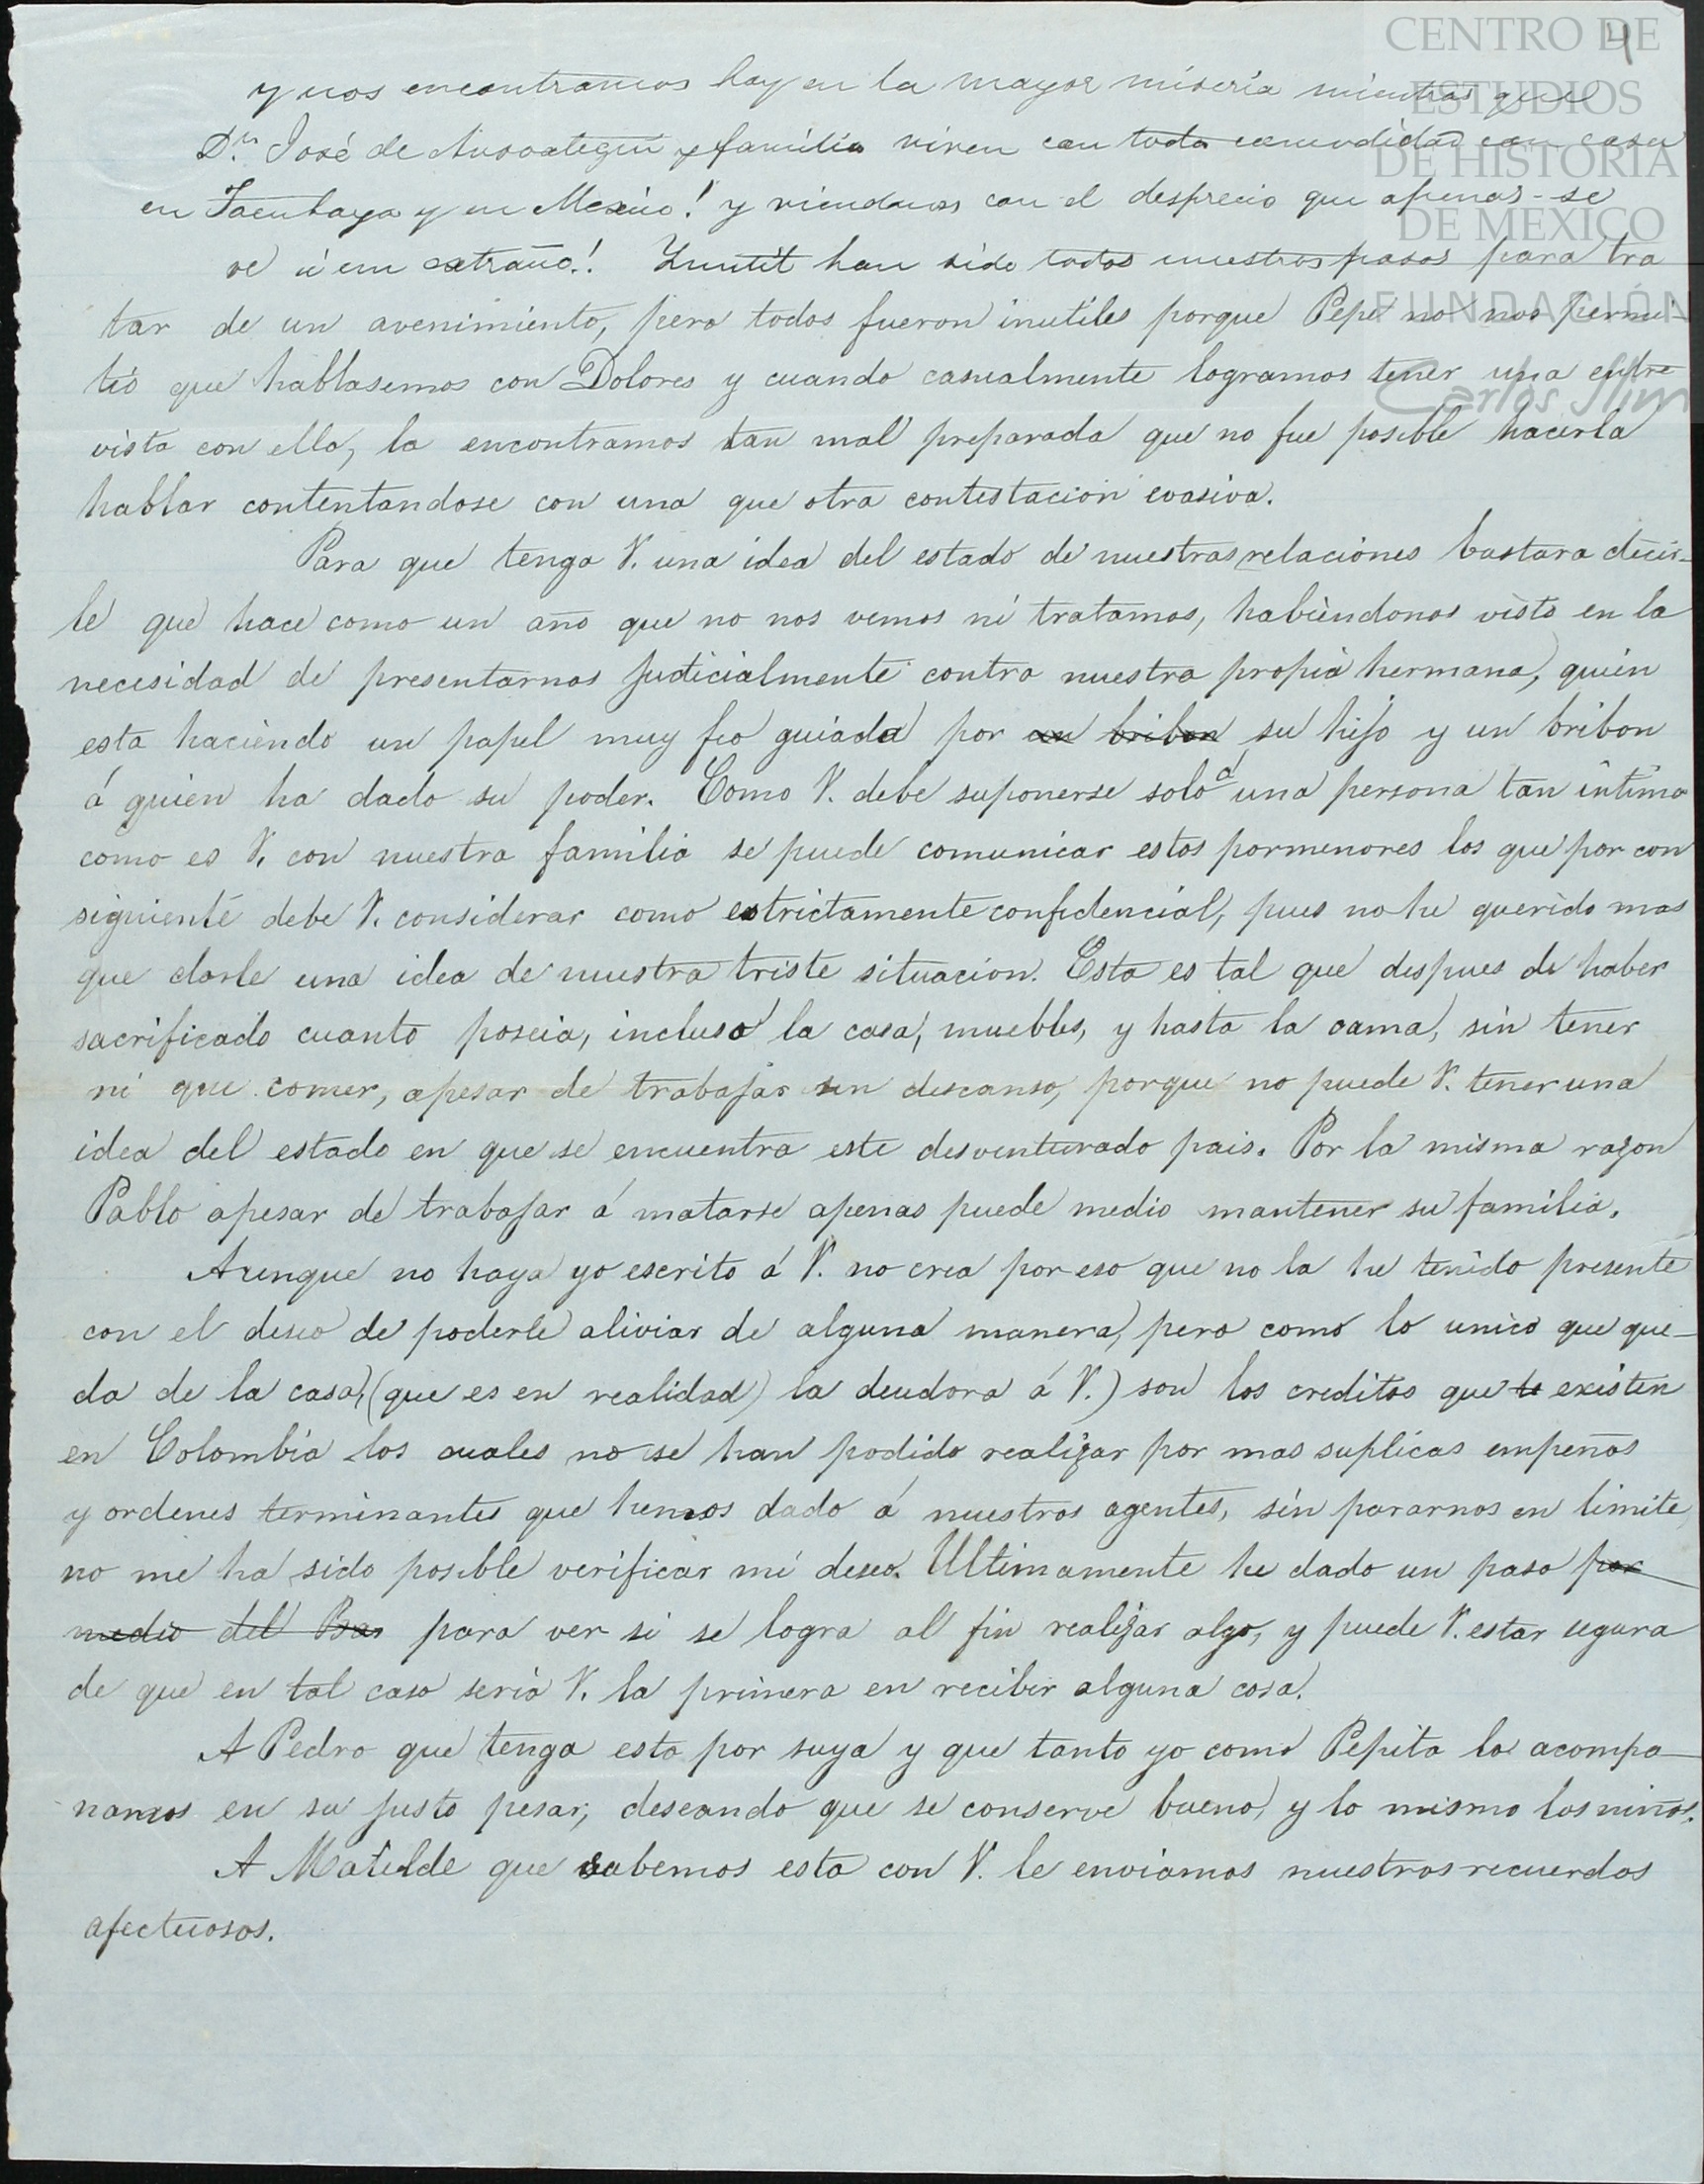 4
CENTRO DE
ESTUDIOS
DE HISTORIA
DE MEXICO
FUNDACIÓN
Carlos Slim
y nos encontramos hoy en la mayor miseria mientras que
Dn. José de y familia viven con toda comodidad con casa
en Tacubaya y en Mexico! y viendonos con el desprecio que apenas se
ve á un extraño! Inutil han sido todos nuestros pasos para tra
tar de un avenimiento, pero todos fueron inutiles porque Pepe no nos permi-
tió que hablasemos con Dolores y cuando casualmente logramos tener una entre
vista con ella, la encontramos tan mal preparada que no fue posible hacerla
hablar contentandose con una que otra contestacion evasiva.
Para que tenga V. una idea del estado de nuestras relaciones bastara decir-
le que hace como un año que no nos vemos ni tratamos, habiendonos visto en la
necesidad de presentarnos judicialmente contra nuestra propia hermana, quien
esta haciendo un papel muy feo guiada por un bribon su hijo y un bribon
á quien ha dado su poder. Como V. debe suponerse solo á una persona tan intima
como es V. con nuestra familia se puede comunicar estos pormenores los que por con
siguiente debe V. considerar como estrictamente confidencial, pues no he querido mas
que darle una idea de nuestra triste situacion. Esta es tal que despues de haber
sacrificado cuanto poseia, incluso la casa, muebles, y hasta la cama, sin tener
ni que comer, apesar de trabajar sin descanso, porque no puede V. tener una
idea del estado en que se encuentra este desventurado pais. Por la misma razon
Pablo apesar de trabajar á matarse apenas puede medio mantener su familia.
Aunque no haya yo escrito á V. no crea por eso que no la he tenido presente
con el deseo de poderle aliviar de alguna manera, pero como lo unico que que-
da de la casa, (que es en realidad la deudora á V.) son los creditos que te existen
en Colombia los cuales no se han podido realizar por mas suplicas empeños
y ordenes terminantes que hemos dado á nuestros agentes, sin pararnos en limite,
no me ha sido posible verificar mi deseo. Ultimamente he dado un paso por
medio del Ban para ver si se logra al fin realizar algo, y puede V. estar segura
de que en tal caso seria V. la primera en recibir alguna cosa.
A Pedro que tenga esta por suya y que tanto yo como Pepita lo acompa-
ñamos en su justo pesar, deseando que se conserve bueno, y lo mismo los niños.
A Matilde que sabemos esta con V. le enviamos nuestros recuerdos
afectuosos.